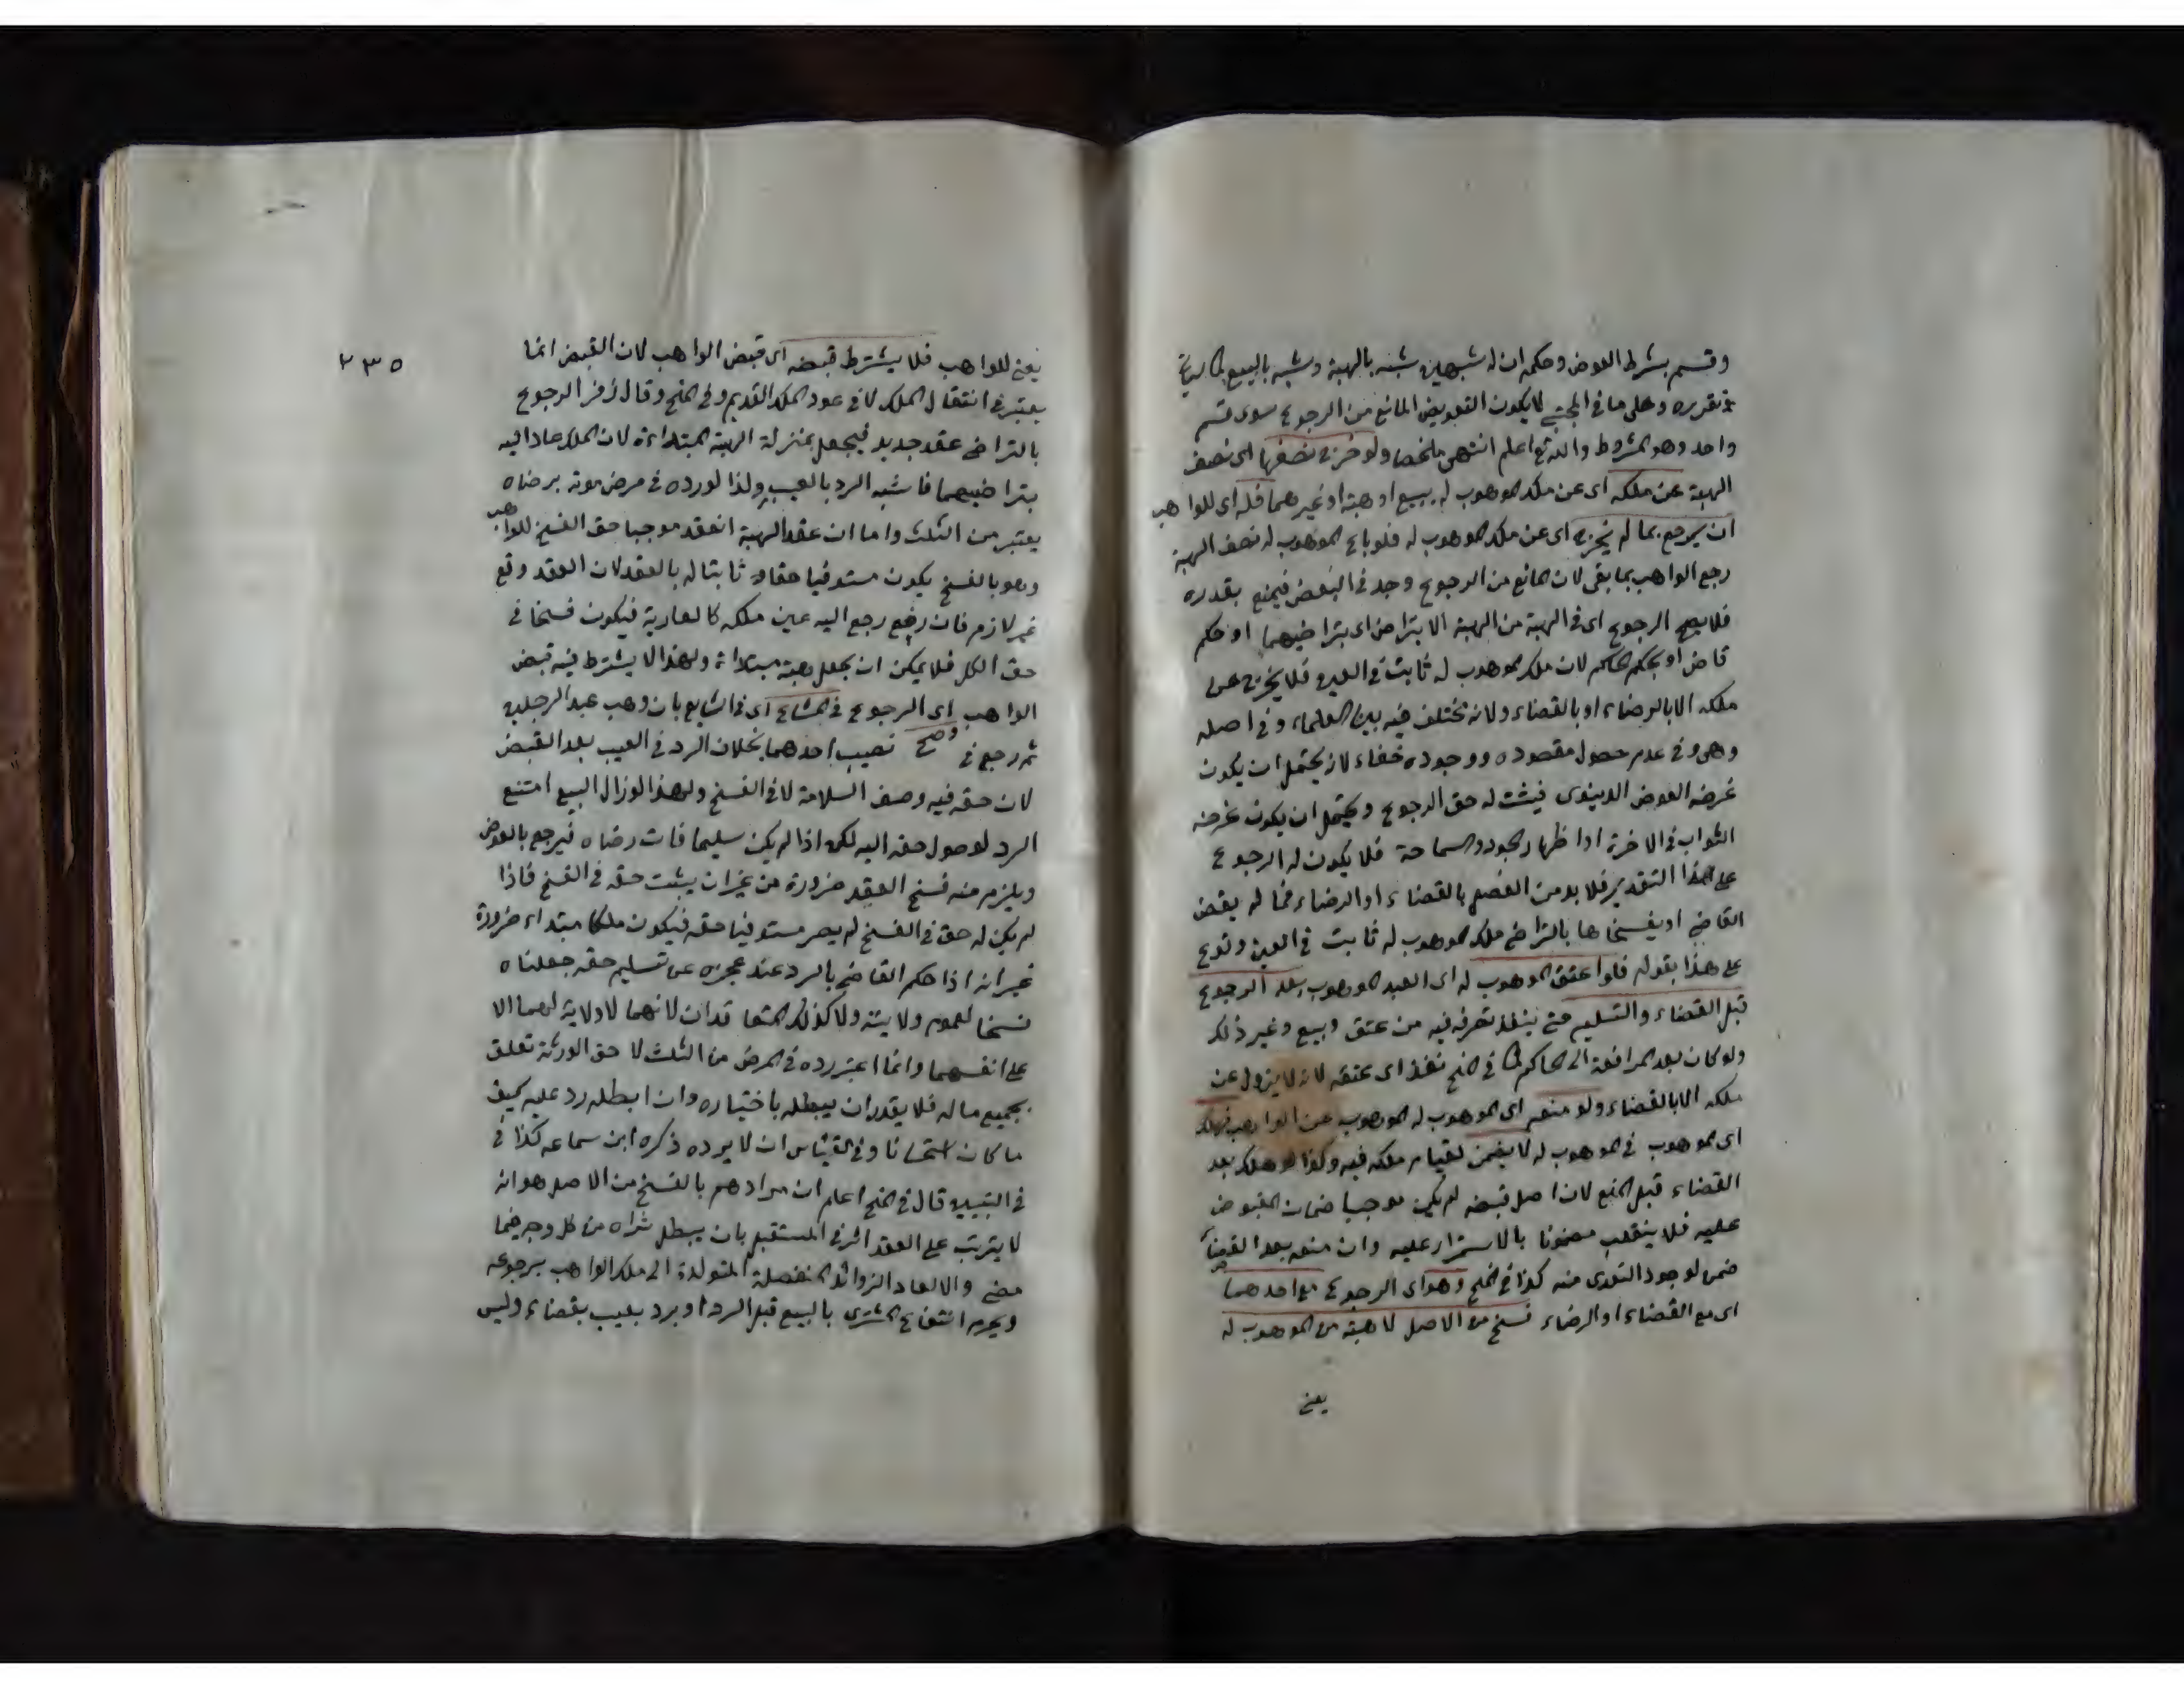 وقسم بشرط العوض وحكمه ان له شبهين شبه بالهبة وشبه بالبيع لما سياتي
في تقريره وعلى ما في المجتبى لا يكون التعويض المانع من الرجوع سوى قسم
واحد وهو المشروط والله تعالى اعلم انتهى ملخصا ولو خرج نصفها اى نصف
الهبة عن ملكه اى عن ملك الموهوب له ببيع او هبة او غيرهما فله اى للواهب
ان يرجع بما لم يخرج اى عن ملك الموهوب له فلو باع الموهوب له نصف الهبة
رجع الواهب بما بقى لان المانع من الرجوع وجد في البعض فيمنع بقدره
فلا يصح الرجوع اى في الهبة من الهبة الا بتراض اى بتراضيهما او حكم
قاض او بحكم الحاكم لان ملك الموهوب له ثابت في العين فلا يخرج عن
ملكه الا بالرضاء او بالقضاء ولانه مختلف فيه بين العلماء وفي اصله
وهى وفي عدم حصول مقصوده ووجوده خفاء لانه يحتمل ان يكون
غرضه العوض الدينوى فيثبت له حق الرجوع ويحتمل ان يكون غرضه
الثواب في الاخرة او اظهار الجود والسماحة فلا يكون له الرجوع
على هذا التقدير فلا بد من الفصل بالقضاء او الرضاء فما لم يقض
القاضي او يفسخاها بالتراضي ملك الموهوب له ثابت في العين وفرع
على هذا بقوله فلو اعتق الموهوب له اى العبد الموهوب بعد الرجوع
قبل القضاء والتسليم حتى ينفذ تصرفه فيه من عتق وبيع وغير ذلك
ولو كان بعد المرافعة الى الحاكم كما في المنح نفذ اى عتقه لانه لا يزول عن
ملكه الا بالقضاء ولو منعه اى الموهوب له الموهوب عن الواهب فهلك
اى الموهوب في الموهوب له لا يضمن لقيام ملكه فيه وكذا لو هلك بعد
القضاء قبل المنع لان اصل قبضه لم يكن موجبا ضمان المقبوض
عليه فلا ينقلب مضمونا بالاستمرار عليه وان منعه بعد القضاء
ضمن لوجود التعدى منه كذا في المنح وهو اى الرجوع مع احدهما
اى مع القضاء او الرضاء فسخ من الاصل لا هبة من الموهوب له
يعني
٢٣٥
يعني للواهب فلا يشترط قبضه اى قبض الواهب لان القبض انما
يعتبر في انتقال الملك لا في عود الملك القديم وفي المنح وقال زفر الرجوع
بالتراضي عقد جديد فيجعل بمنزلة الهبة المبتداءة لان الملك عاد اليه
بتراضيهما فاشبه الرد بالعيب ولذا لو رده في مرض موته برضاه
يعتبر من الثلث واما ان عقد الهبة انعقد موجبا حق الفسخ للواهب
وهو بالفسخ يكون مستوفيا حقا ثابتا له بالعقد لان العقد وقع
غير لازم فان رفع رجع اليه عين ملكه كالعارية فيكون فسخا في
حق الكل فلا يمكن ان يجعل هبة مبتداة ولهذا لا يشترط فيه قبض
الواهب اى الرجوع في المشاع اى في الشايع بان وهب عبدا لرجلين
ثم رجع في وصح نصيب احدهما بخلاف الرد في العيب بعد القبض
لان حقه فيه وصف السلامة لا في الفسخ ولهذا لو زال البيع امتنع
الرد لوصول حقه اليه لكن اذا لم يكن سليما فات رضاه فيرجع بالعوض
ويلزم منه فسخ العقد ضرورة من غير ان يثبت حقه في الفسخ فاذا
لم يكن له حق في الفسخ لم يصر مستوفيا حقه فيكون ملكا مبتداء ضرورة
غير انه اذا حكم القاضي بالرد عند عجزه عن تسليم حقه جعلناه
فسخا لعموم ولايته ولا كذلك المتعاقدان لانهما لا ولاية لهما الا
على انفسهما وانما اعتبر رده في المرض من الثلث لا حق الورثة تعلق
بجميع ماله فلا يقدر ان يبطله باختياره وان ابطله رد عليه كيف
ما كان استحسانا وفي القياس ان لا يرده ذكره ابن سماعه كذا في
في التبيين قال في المنح اعلم ان مرادهم بالفسخ من الاصل هو انه
لا يترتب على العقد اثر في المستقبل بان يبطل شراه من كل وجه فيما
مضى والا لعاد الزوائد المنفصلة المتولدة الى ملك الواهب برجوعه
ويحرم انتفاع المشترى بالبيع قبل الرد او برد بعيب بقضاء وليس